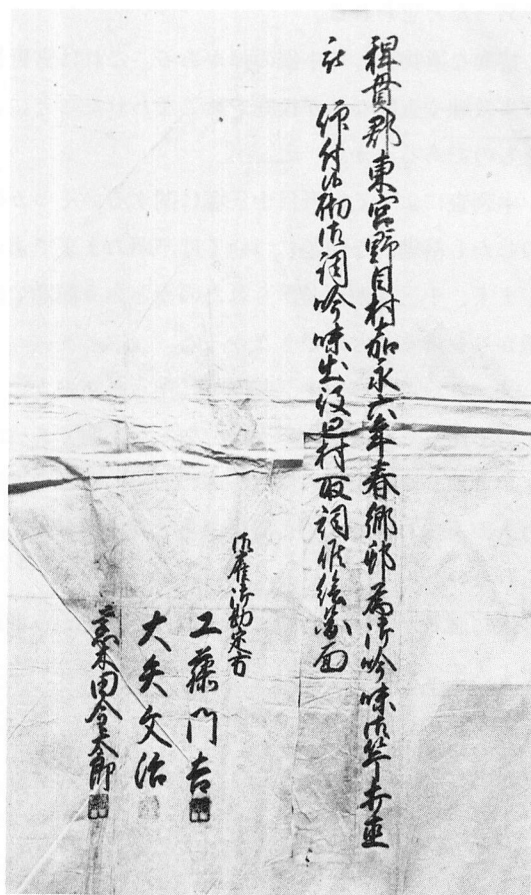 稗貫郡東宮野目村嘉永六年春郷邨為御吟味御竿赤直
被 仰付御物御調吟味出役思村取調候絵図面
御雇御勘定方
工藤門吉
大矢文治
田令太郎